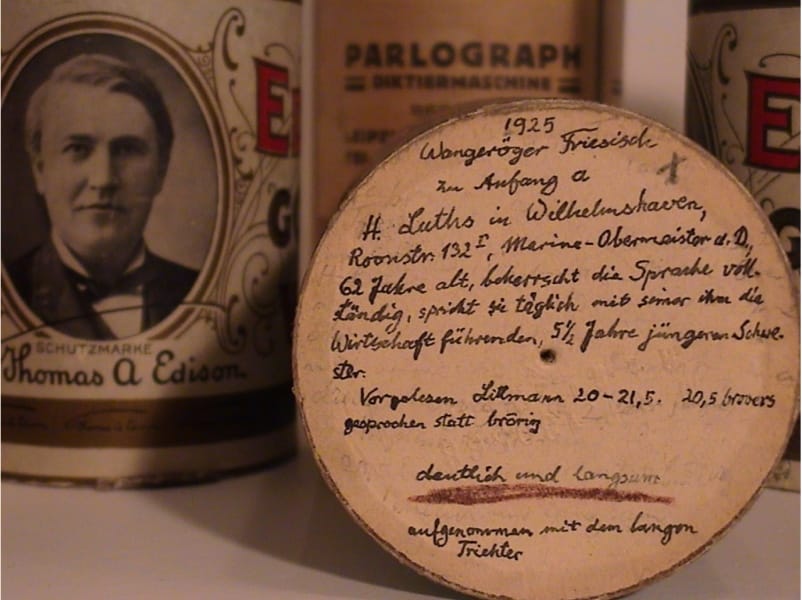 PARLOGRAPH
DIKTIERMASCHINE
SCHUTZMARKE
Thomas A Edison
1925
Wangeröger Friesisch
zu Anfang a
H. Luths in Wilhelmshaven,
Roonstr. 132 I, Marine-Obermeister a. D.,
62 Jahre alt, beherrscht die Sprache voll-
ständig, spricht sie täglich mit seiner ihm die
Wirtschaft führenden, 5½ Jahre jüngeren Schwe-
ster.
Vorgelesen Littmann 20-21,5. 20,5 brovers
gesprochen statt brörig
deutlich und langsam
aufgenommen mit dem langen
Trichter